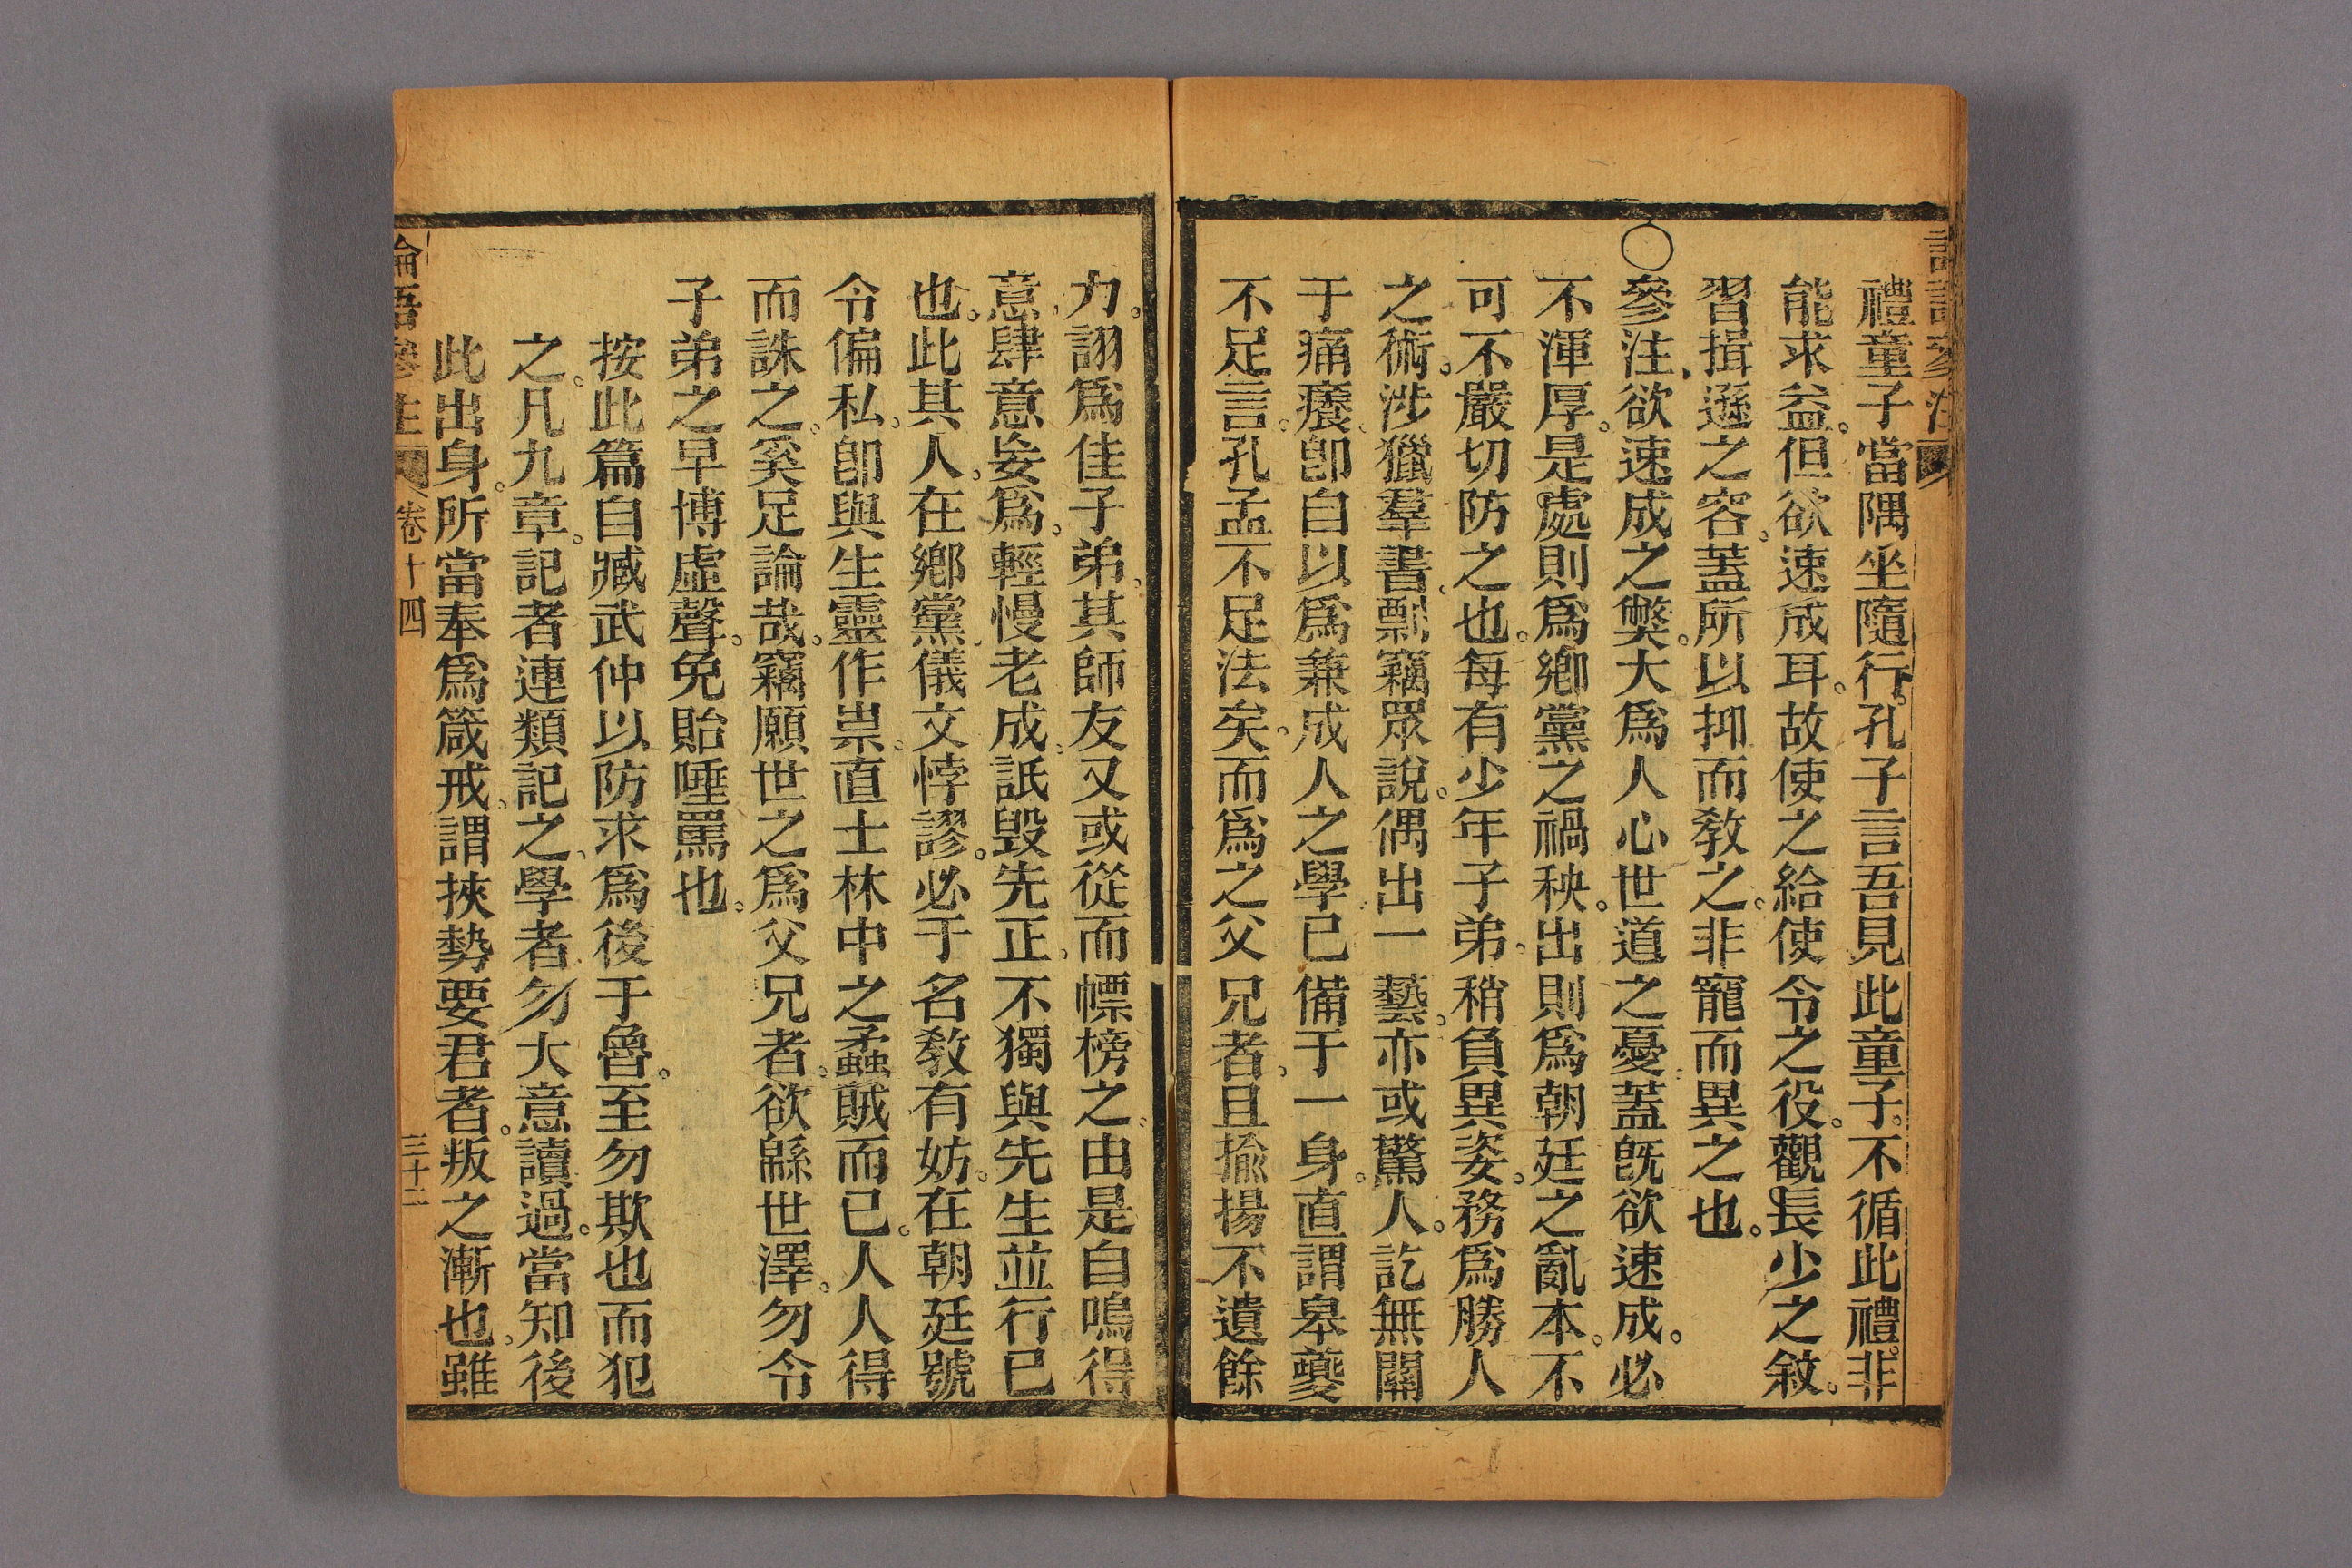 禮童子當隅坐隨行。孔子言吾見此童子。不循此禮。非
能求益。但欲速成耳。故使之給使令之役。觀長少之敘。
習揖遜之容。蓋所以抑而敎之。非寵而異之也。
〇參注、欲速成之獘。大爲人心世道之憂。蓋旣欲速成。必
不渾厚。是處則爲鄉黨之禍秧。出則爲朝廷之亂本。不
可不嚴切防之也。每有少年子弟。稍負異姿。務爲勝人
之術。涉獵羣書。剽竊眾說。偶出一藝。亦或驚人。訖無關
于痛癢。卽自以爲兼成人之學。已備于一身。直謂皋夔
不足言。孔孟不足法矣。而爲之父兄者。且揄揚不遺餘
力。詡爲佳子弟。其師友又或從而幖榜之。由是自鳴得
意。肆意妄爲。輕慢老成。詆毀先正。不獨與先生並行已
也。此其人。在鄉黨。儀文悖謬。必于名敎有妨。在朝廷號
令偏私。卽與生靈作祟。直士林中之蟊賊而已。人人得
而誅之。奚足論哉。竊願世之爲父兄者。欲緜世澤。勿令
子弟之早博虛聲。免貽唾罵也。
按此篇自臧武仲以防求爲後于魯。至勿欺也而犯
之。凡九章。記者連類記之。學者勿大意讀過。當知後
此出身。所當奉爲箴戒。謂挾勢要君者。叛之漸也。雖
論語參注
卷十四
三十二